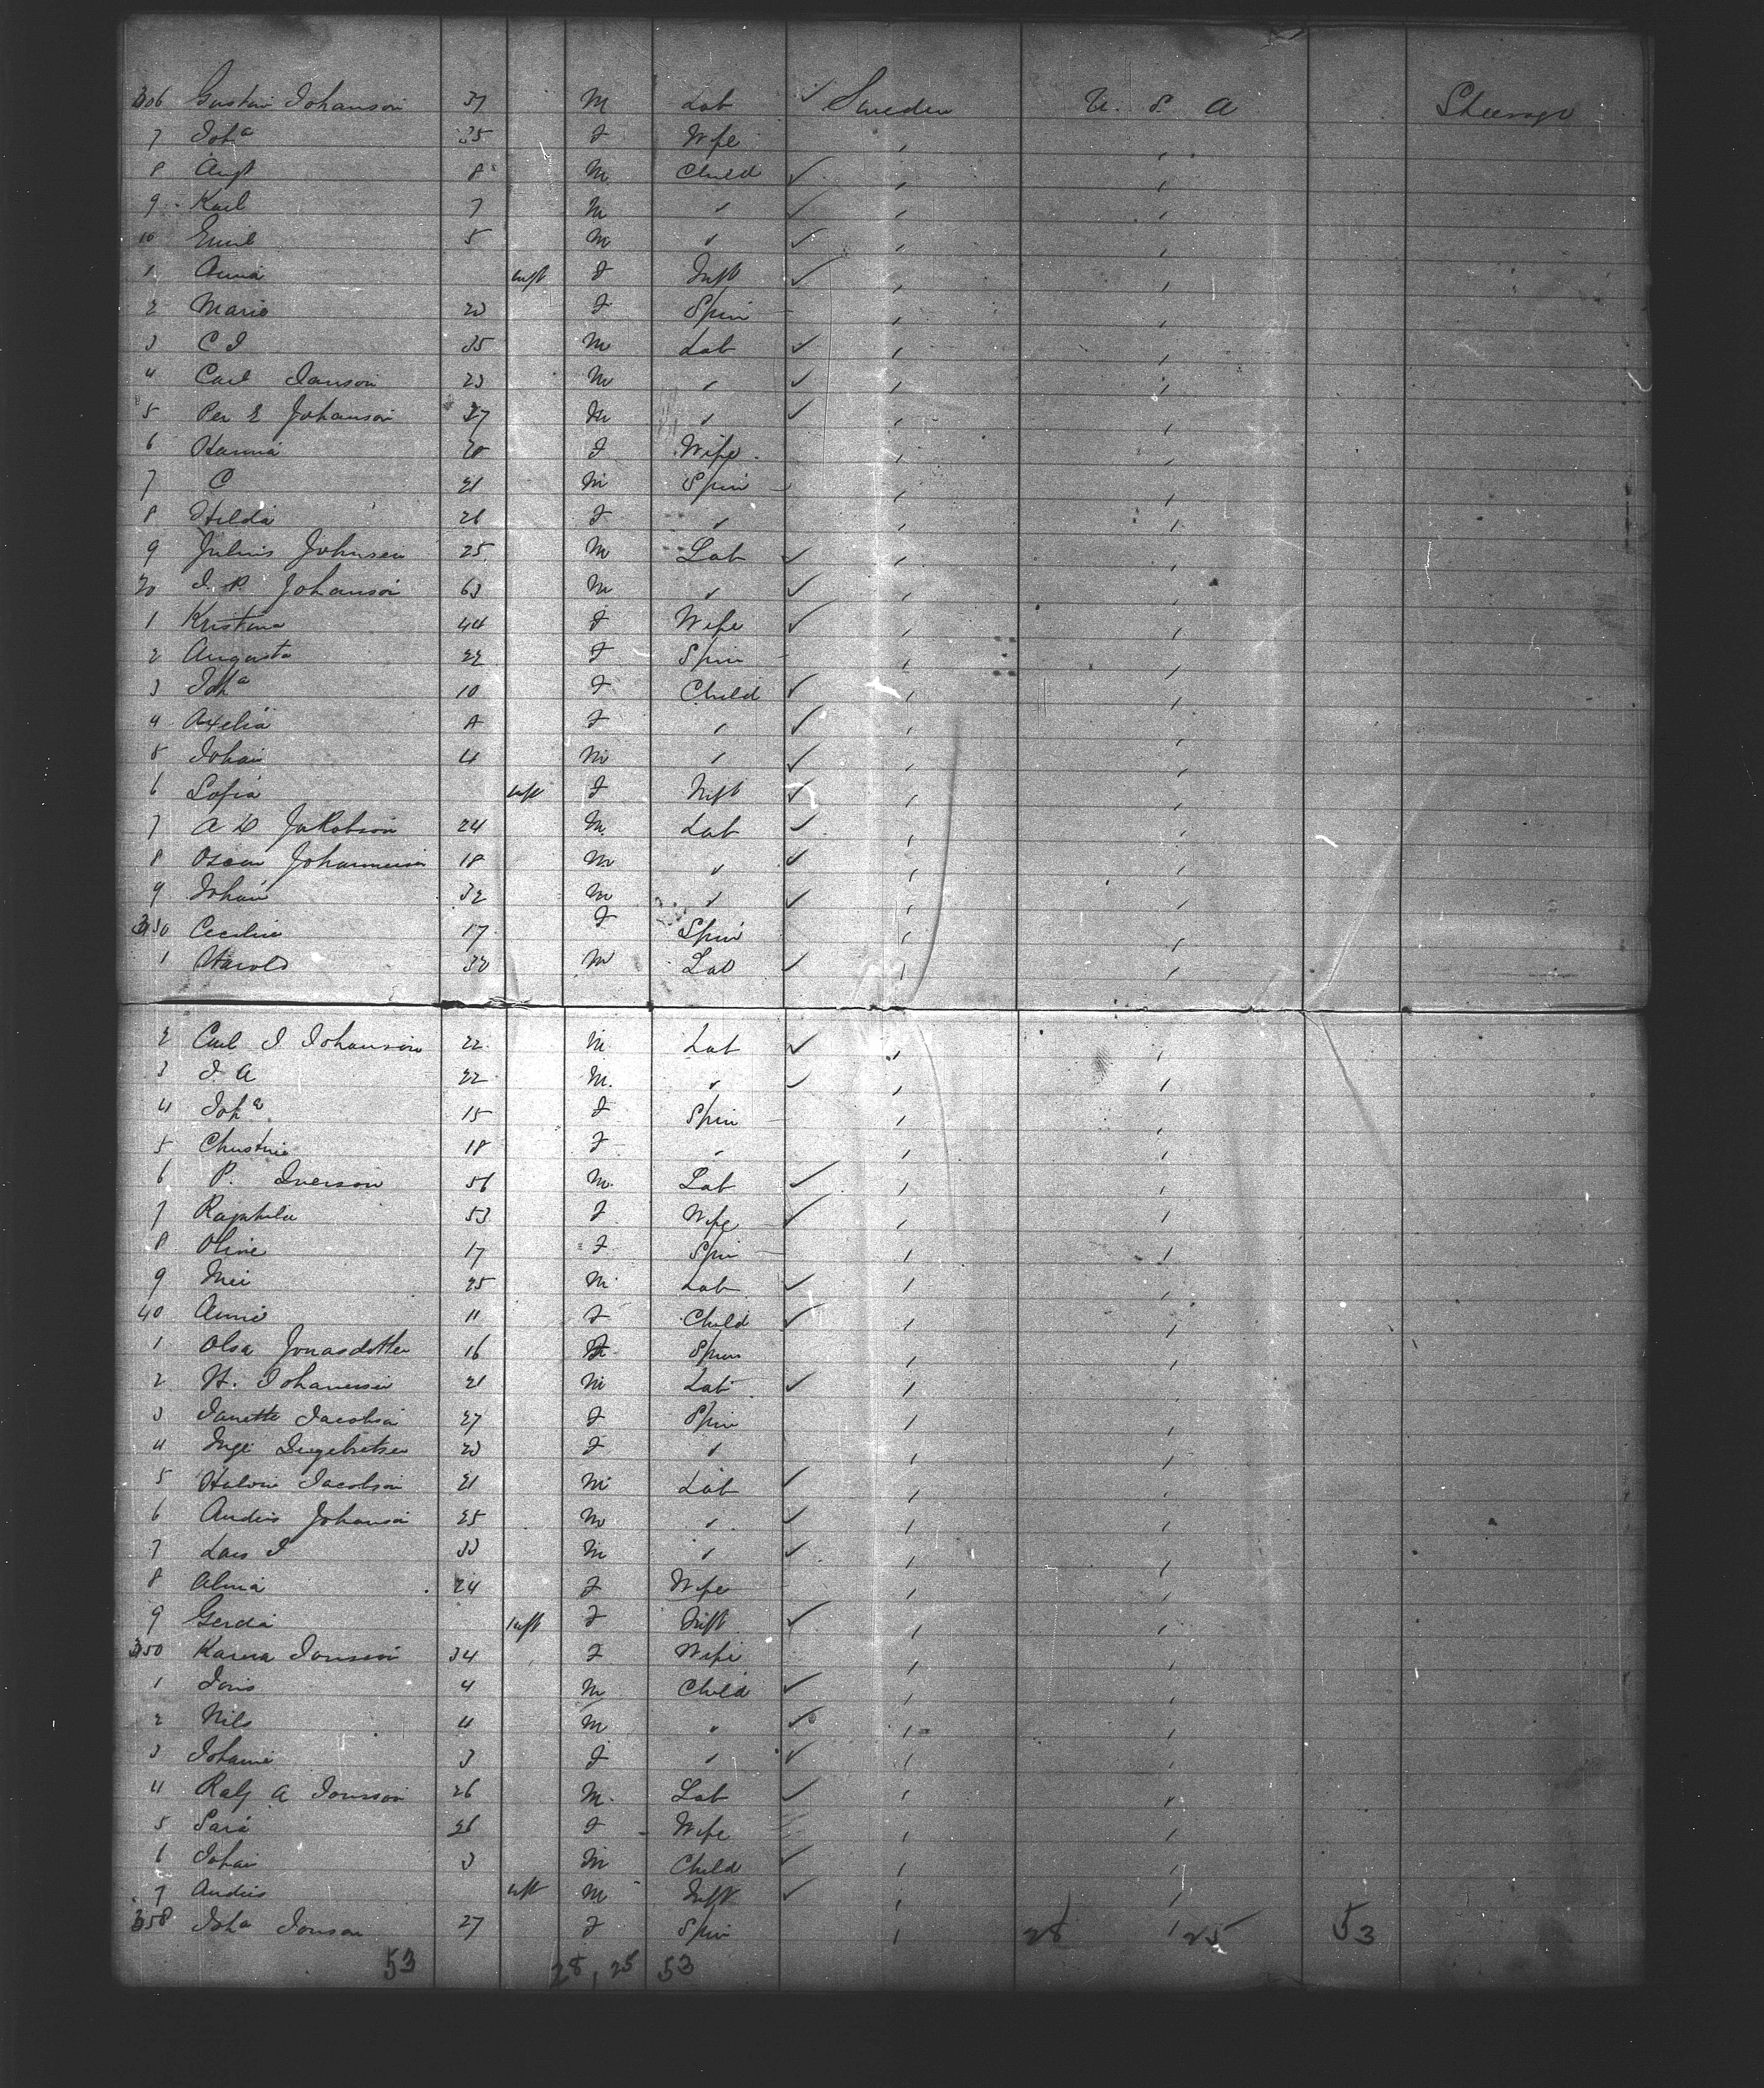 306 Gustav Johanson 37 M Lab ✓ Sweden U. S. A Steerage
7 Joh^a 35 F Wife " "
8 Aug^t 8 M Child ✓ " "
9 Karl 7 M " ✓ " "
10 Emil 5 M " ✓ " "
1 Anna inft F Inft ✓ " "
2 Marie 23 F Spin - " "
3 C J 35 M Lab ✓ " "
4 Carl Janson 23 M " ✓ " "
5 Per E Johanson 37 M " ✓ " "
6 Hanna 28 F Wife " "
7 C 21 M Spin - " "
8 Hilda 26 F " " "
9 Julius Johnsen 25 M Lab ✓ " "
20 J. P. Johanson 63 M " ✓ " "
1 Kristina 44 F Wife ✓ " "
2 Augusta 22 F Spin - " "
3 Joh^a 10 F Child ✓ " "
4 Axelia F " ✓ " "
5 Johan 4 M " ✓ " "
6 Sofia inft F Inft ✓ " "
7 A Jakobson 24 M Lab ✓ " "
8 Oscar Johannesen 18 M " ✓ " "
9 Johan 32 M " ✓ " "
330 Cecilie 17 F Spin " "
1 Harold 30 M Lab ✓ " "
2 Carl J Johanson 22 M Lab ✓ " "
3 J A 22 M " ✓ " "
4 Joh^a 15 F Spin - " "
5 Christine 18 F " " "
6 P. Iverson 56 M Lab ✓ " "
7 53 F Wife ✓ " "
8 Oline 17 F Spin - " "
9 25 M Lab ✓ " "
40 Annie 11 F Child ✓ " "
1 Olsa Jonasdotter 16 F Spin " "
2 H. Johansen 21 M Lab ✓ " "
3 Janette Jacobson 27 F Spin " "
4 Inge Ingebretsen 23 F " " "
5 Jacobson 21 M Lab ✓ " "
6 Anders Johanson 25 M " ✓ " "
7 Lars J 33 M " ✓ " "
8 Alma 24 F Wife " "
9 Gerda inft F Inft ✓ " "
350 Karna Jonsson 34 F Wife " "
1 Jons 4 M Child ✓ " "
2 Nils 4 M " ✓ " "
3 Johanne 3 F " ✓ " "
4 Ralf A Jonsson 26 M Lab ✓ " "
5 Sara 26 F Wife " "
6 Johan 3 M Child ✓ " "
7 Anders inft M Inft ✓ " "
358 Joh^a Jonson 27 F Spin " 28 " 25 53
53 28, 25 53